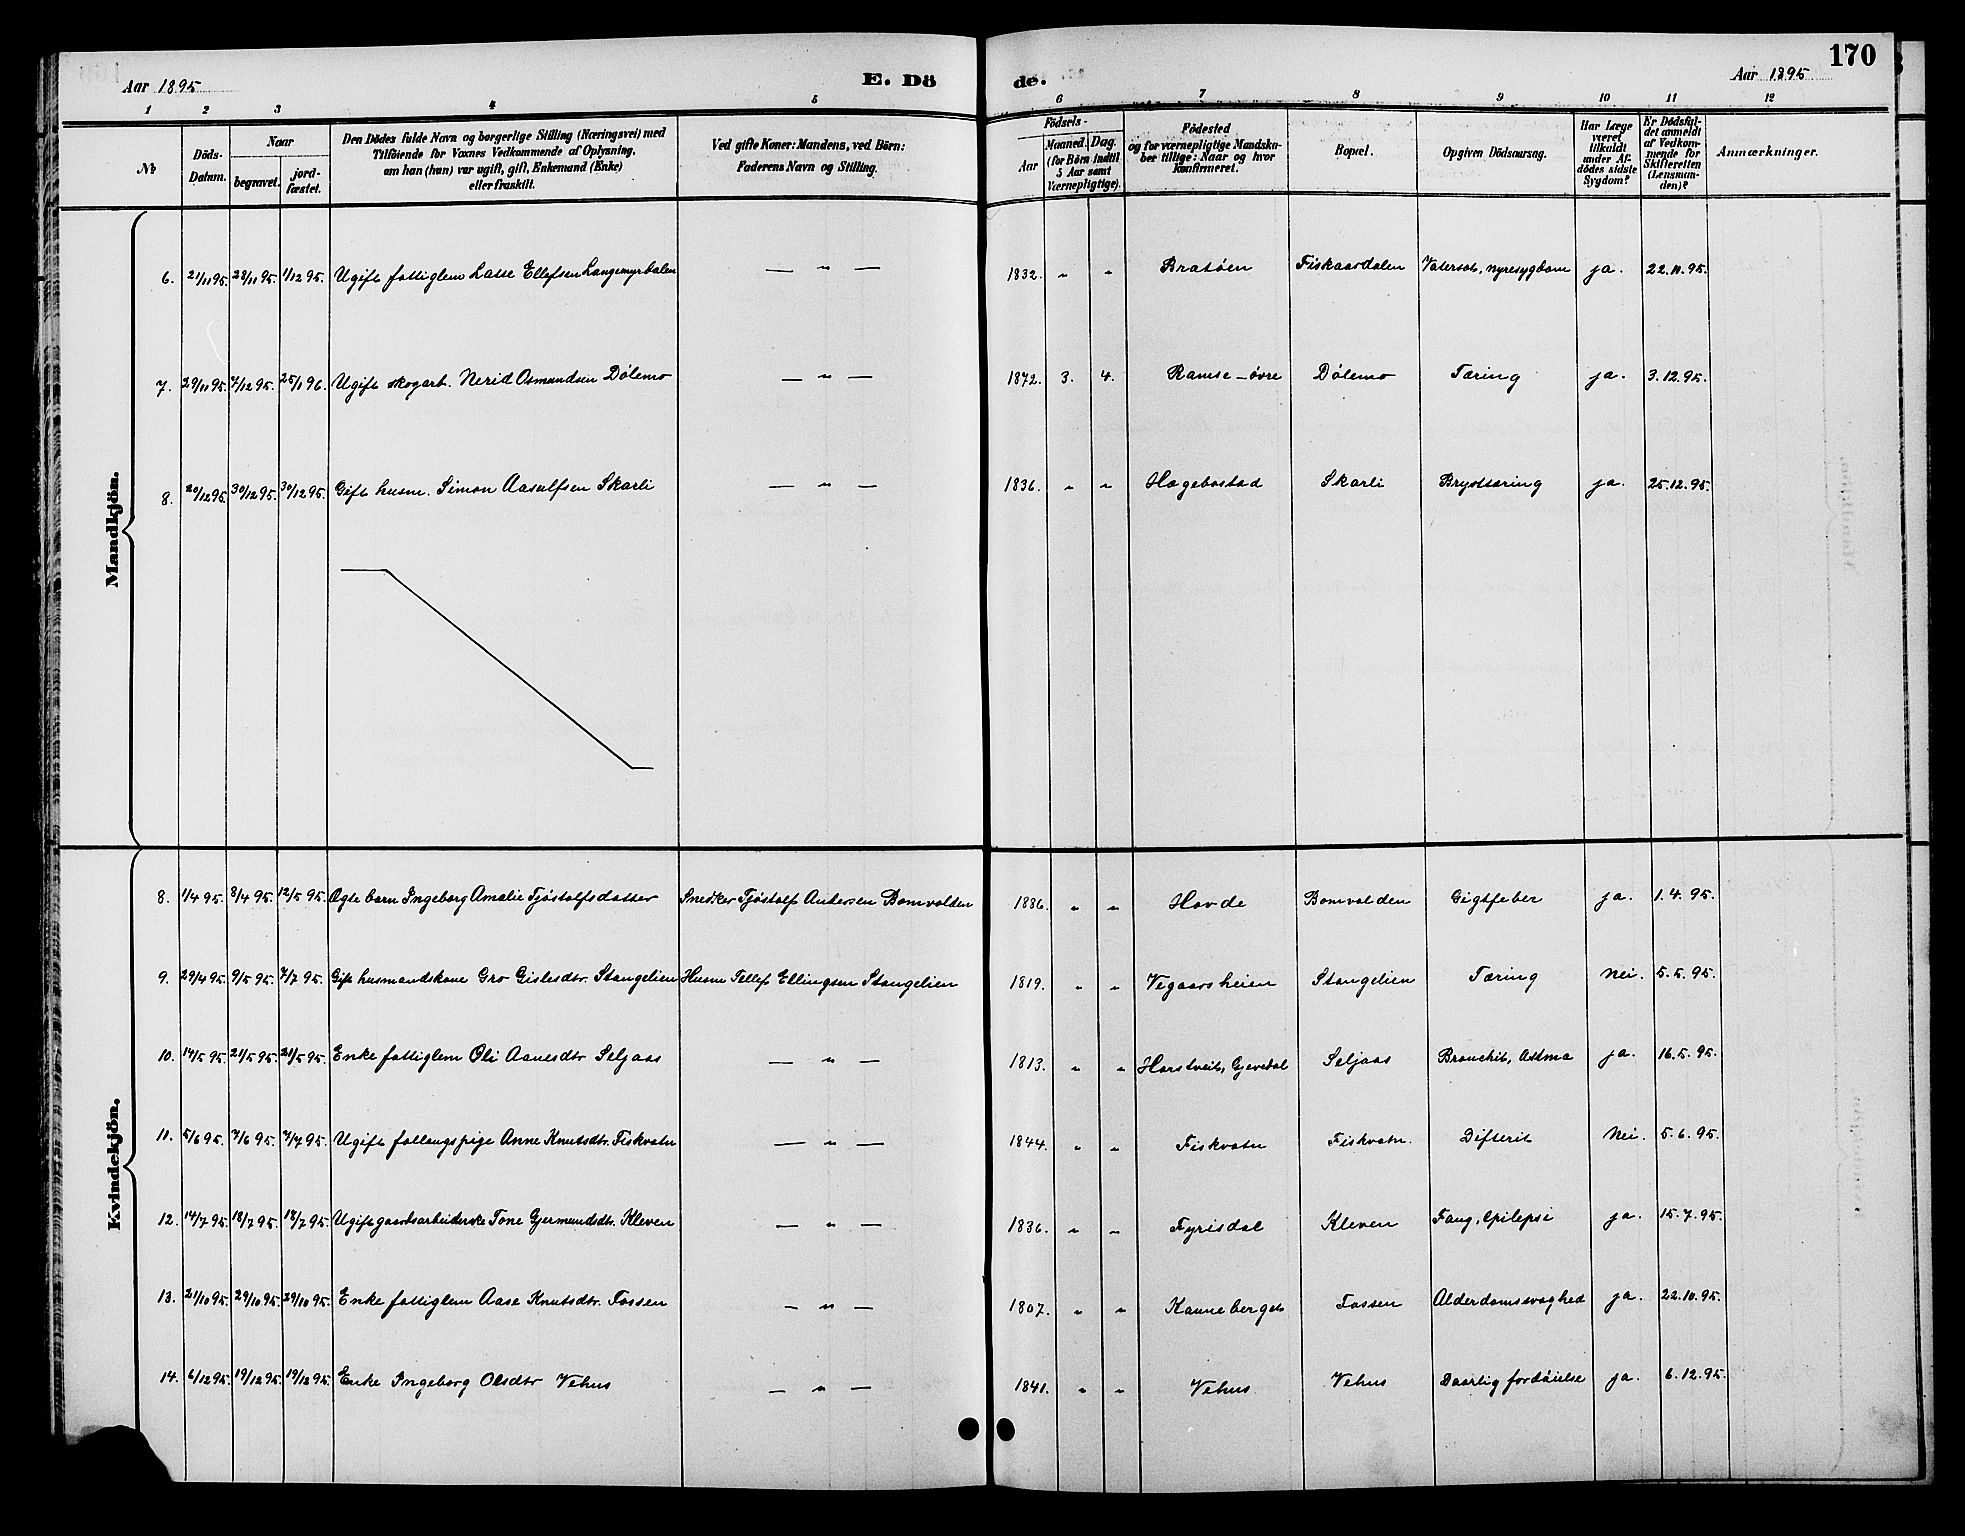 170
Aar 1895
E. Dö
de.
Aar 1895
1 2 3 4 5 6 7 8 9 10 11 12
No
Döds-Datum.
Naar
begravet.
jord-fæstet.
Den Dödes fulde Navn og borgerlige Stilling (Næringsvei) med
Tilföiende for Voxnes Vedkommende af Oplysning,
om han (hun) var ugift, gift, Enkemand (Enke)
eller fraskilt.
Ved gifte Koner: Mandens, ved Börn:
Faderens Navn og Stilling.
Födsels-
Aar
Maaned. Dag.
(for Börn indtil
5 Aar samt
Værnepligtige).
Födested
og for værnepligtige Mandska-
ber tillige: Naar og hvor
konfirmeret.
Bopæl.
Opgiven Dödsaarsag.
Har Læge
været
tilkaldt
under Af-
dödes sidste
Sygdom?
Er Dödsfal-
det anmeldt
af Vedkom-
mende for
Skifteretten
(Lensman-
den)?
Anmærkninger.
Mandkjön.
6. 21/11 95. 28/11 95. 1/12 95. Ugift fattiglem Lasse Ellefsen Langemyrdalen — " — 1832. " " Bratöen Fiskaasdalen Vatersot, nyresygdom ja. 22.11.95.
7. 29/11 95. 7/12 95. 25/1 96. Ugift skogarb. Nerid Osmundsen Dölemo — " — 1872. 3. 4. Ramse - övre Dölemo Tæring ja. 3.12.95.
8. 20/12 95. 30/12 95. 30/12 95. Gift husm. Simon Aasulfsen Skarli — " — 1836. " " Hægebostad Skarli Brysttæring ja. 25.12.95.
Kvindekjön.
8. 1/4 95. 8/4 95. 12/5 95. Ægte barn Ingeborg Amalie Tjöstolfsdatter Snedker Tjöstolf Andersen Bomvolden 1886. " " Hovde Bomvolden Gigtfeber ja. 1.4.95.
9. 29/4 95. 9/5 95. 7/7 95. Gift husmandskone Gro Gislesdtr. Stangelien Husm Tellef Ellingsen Stangelien 1819. " " Vegaarsheien Stangelien Tæring Nei. 5.5.95.
10. 14/5 95. 21/5 95. 21/5 95. Enke fattiglem Oli Aanesdtr Seljaas — " — 1813. " " Harstveit, Gjevedal Seljaas Bronchit, Astma ja. 16.5.95.
11. 5/6 95. 7/6 95. 7/7 95. Ugift fattigpige Anne Knutsdtr. Fiskvatn — " — 1844. " " Fiskvatn Fiskvatn. Difterit Nei. 5.6.95.
12. 14/7 95. 18/7 95. 18/7 95. Ugift gaardsarbeiderske Tone Gjermundsdtr. Kleven — " — 1836. " " Fyrisdal Kleven Fang, Epilepsi ja. 15.7.95.
13. 21/10 95. 29/10 95. 29/10 95. Enke fattiglem Aase Knutsdtr. Fossen — " — 1807. " " Kanneberget Fossen Alderdomssvaghed ja. 22.10.95.
14. 6/12 95. 19/12 95. 19/12 95. Enke Ingeborg Olsdtr Vehus — " — 1841. " " Vehus Vehus Daarlig fordöielse ja. 6.12.95.